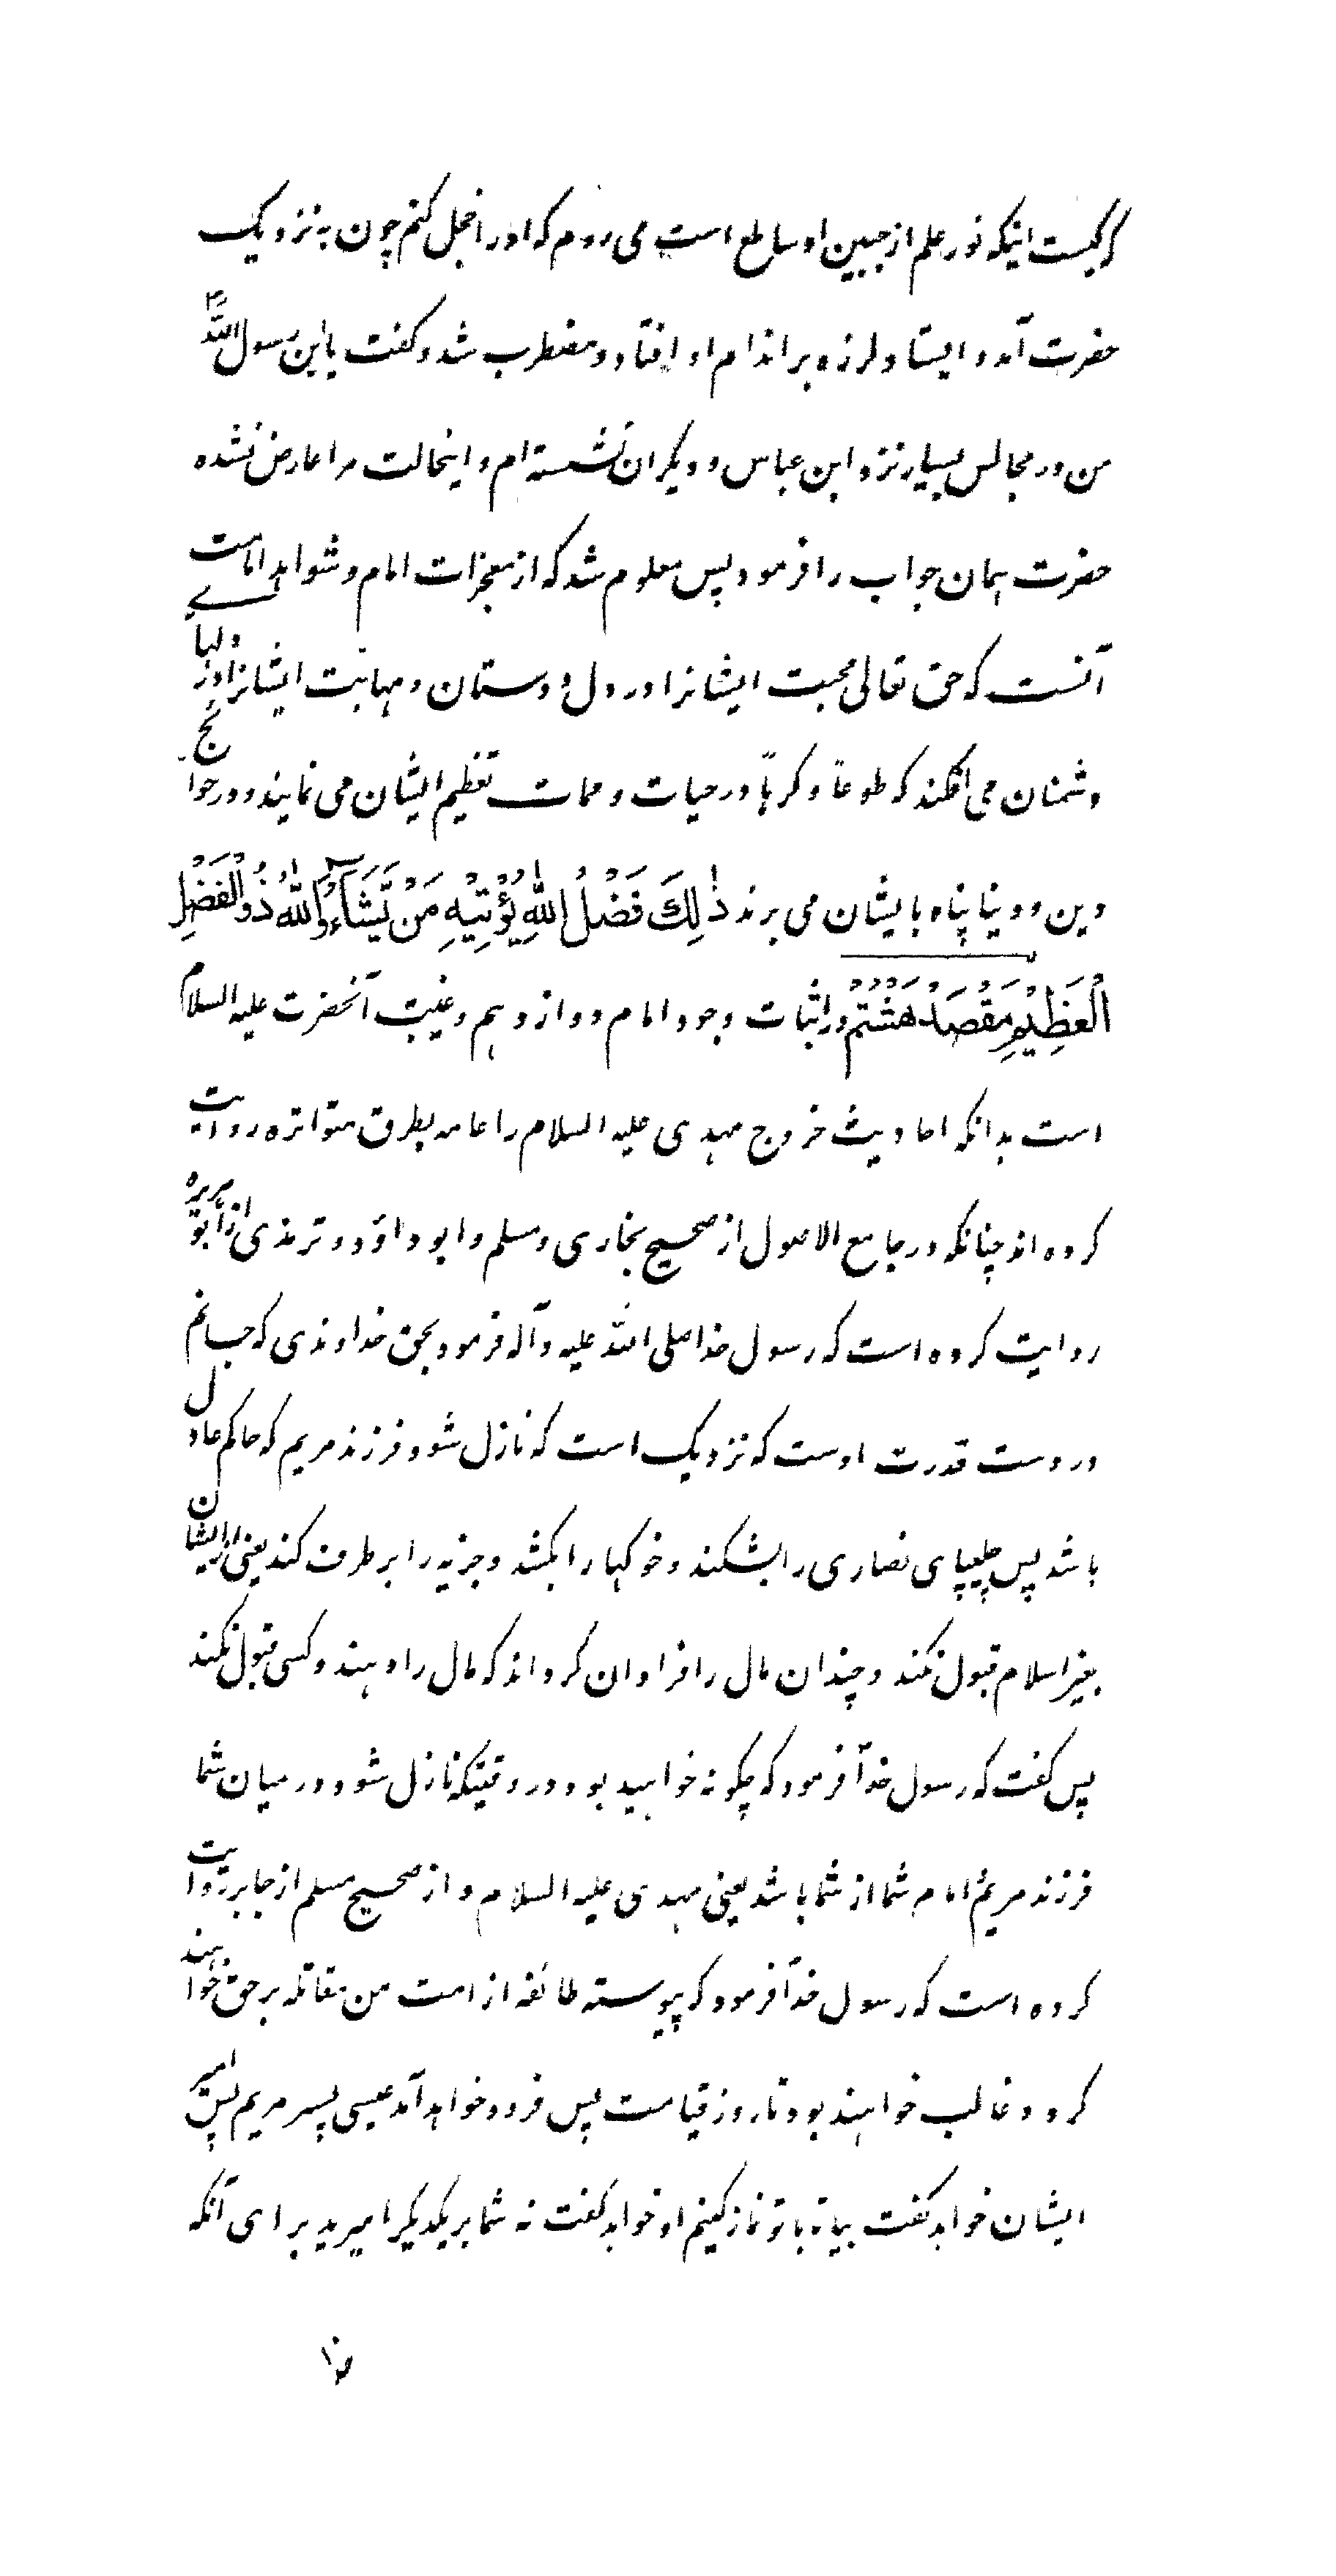 که کیست اینکه نور علم از جبین او ساطع است می روم که او را خجل کنم چون به نزدیک
حضرت آمد و ایستاد لرزه بر اندام او افتاد و مضطرب شد و گفت یا ابن رسول اللهؐ
من در مجالس بسیار نزد ابن عباس و دیگران نشسته ام و اینحالت مرا عارض نشده
حضرت همان جواب را فرمود پس معلوم شد که از معجزات امام و شواهد امامت
آنست که حق تعالی محبت ایشانرا در دل دوستان و مهابت ایشانرا در دلهای
دشمنان می افکند که طوعاً و کرهاً در حیات و ممات تعظیم ایشان می نمایند و در حوائج
دین و دنیا پناه بایشان می برند ذٰلِكَ فَضْلُ اللهِ يُؤْتِيْهِ مَنْ يَّشَآءُ وَاللهُ ذُوالْفَضْلِ
الْعَظِيْمِ مَقْصَدْ هَشْتُمْ در اثبات وجود امام دوازدهم و غیبت آنحضرت علیه السلام
است بدانکه احادیث خروج مهدی علیه السلام را عامه بطرق متواتره روایت
کرده اند چنانکه در جامع الاصول از صحیح بخاری و مسلم و ابو داؤد و ترمذی از ابوهریره
روایت کرده است که رسول خدا صلی الله علیه و آله فرمود بحق خداوندی که جانم
در دست قدرت اوست که نزدیک است که نازل شود فرزند مریم که حاکم عادل
باشد پس چلیپای نصاری را بشکند و خوکها را بکشد و جزیه را برطرف کند یعنی از ایشان
بغیر اسلام قبول نکند و چندان مال را فراوان کرداند که مال را دهند و کسی قبول نکند
پس گفت که رسول خداؐ فرمود که چگونه خواهید بود در وقتیکه نازل شود در میان شما
فرزند مریم امام شما از شما باشد یعنی مهدی علیه السلام و از صحیح مسلم از جابر روایت
کرده است که رسول خداؐ فرمود که پیوسته طائفه از امت من مقاتله بر حق خواهند
کرد و غالب خواهند بود تا روز قیامت پس فرود خواهد آمد عیسی پسر مریم پس امیر
ایشان خواهد گفت بیا تا با تو نماز کنیم او خواهد گفت نه شما بر یکدیگر امیرید برای آنکه
خدا